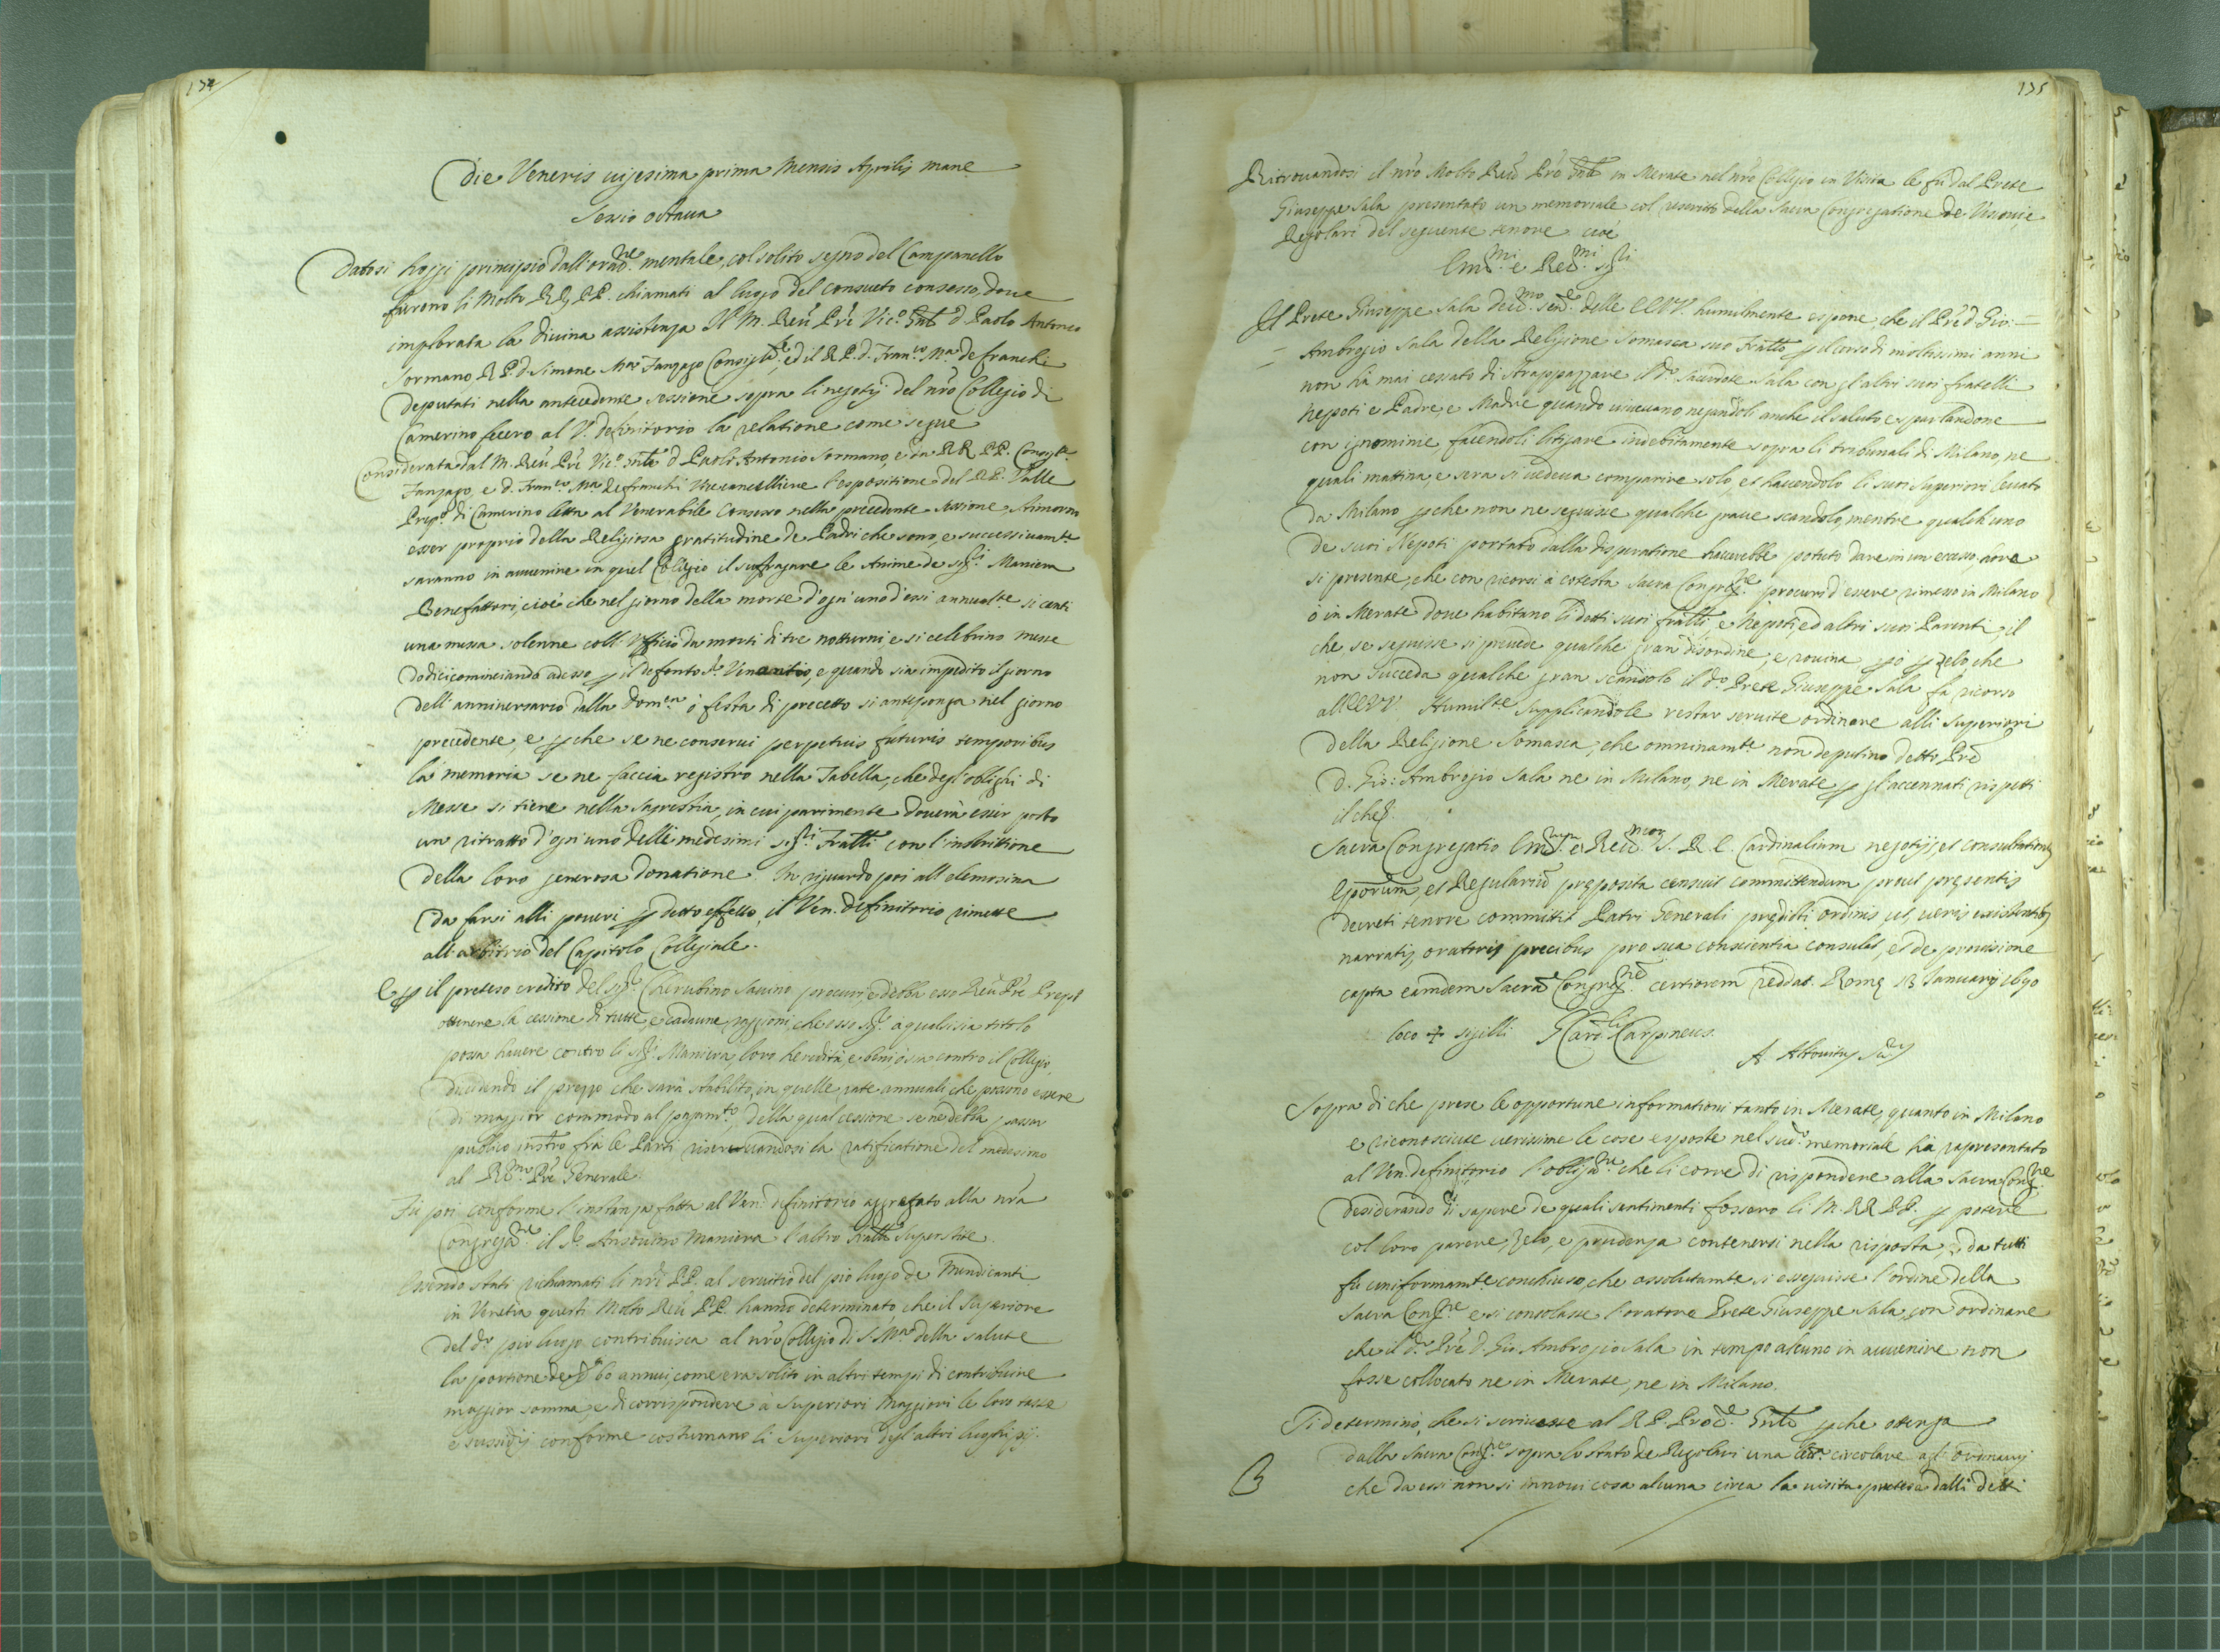 174
Die Veneris vigesima prima Mensis Aprilis mane
Sessio octava
Datosi hoggi principio dall'orad.ne mentale, col solito segno del Campanello
furono li Molto RR. PP. chiamati al luogo del consueto consesso, doue
implorata la diuina assistenza Il M. Reu. Pre Vic.o Gnle d. Paolo Antonio
Sormano R P. d. Simone Mar.a Fanzago Consigl.e, ed il R. P. d. Fran.co M.a de franchi
deputati nella antecedente sessione sopra li negotij del nro Collegio di
Camerino fecero al V. definitorio la relatione come segue
Considerata dal M. Reu. Pre Vic.o Gnle d. Paolo Antonio Sormano, e da RR. PP. Consig.re
Fanzago, e d. Fran.co M.a de franchi Vicecancelliere l'espositione del R. P. Valle
Prep.o di Camerino letta al Venerabile Consesso nella precedente sessione stimorno
esser proprio della Religiosa gratitudine de Padri che sono, e successiuam.te
saranno in auuenire in quel Collegio il suffragare le Anime de sig.ri Maniera
Benefattori, cioè che nel giorno della morte d'ogn'uno d'essi annualm.te si canti
una messa solenne coll' Vfficio da morti di tre notturni, e si celebrino messe
dodici cominciando adesso p il defonto S.r Venantio, e quando sia impedito il giorno
dell'anniuersario dalla Dom.ca ò festa di precetto si anteponga nel giorno
precedente, e p che se ne conserui perpetuis futuris temporibus
la memoria se ne faccia registro nella Tabella, che degl'oblighi di
Messe si tiene nella sagrestia, in cui parimente douerà esser posto
un ritratto d'ogn'uno delli medesimi sig.ri Fratelli con l'inscrittione
della loro generosa donatione. In riguardo poi all'elemosina
da farsi alli poueri p detto effetto, il Ven. definitorio rimette
all'arbitrio del Capitolo Collegiale.
E p il preteso credito del sig.r Cherubino Sauino procuri, e debba esso Reu. Pre Prep.to
ottenere la cessione di tutte, e cadaune raggioni, che esso sig.r à qualsisia titolo
possa hauere contro li sig.ri Maniera, loro heredità, e beni, ò sia contro il Collegio,
diuidendo il prezzo che sarà stabilito, in quelle rate annuali che possono essere
di maggior commodo al pagam.to, della qual cessione se ne debba passar
publico instro frà le Parti riseruandosi la ratificatione del medesimo
al R.mo Pre Generale.
Fù poi conforme l'instanza fatta al Ven. definitorio aggregato alla nra
Congregat.ne il S.r Ansouino Maniera l'altro fratello superstite.
Essendo stati richiamati li nri PP. al seruitio del pio luogo de Mendicanti
in Venetia questi Molto Reu. PP. hanno determinato che il Superiore
del d.o pio luogo contribuisca al nro Collegio di S. M.a della Salute
la portione de 60 annui, come era solito in altri tempi di contribuire
maggior somma, e di corrispondere à Superiori Maggiori le loro tasse
e sussidij conforme costumano li Superiori degl'altri luoghi pij.
175
Ritrouandosi il nro Molto Reu. Pre Gnle in Merate nel nro Collegio in Visita le fù dal Prete
Giuseppe Sala presentato un memoriale col rescritto della Sacra Congregatione de Vescoui, e
Regolari del seguente tenore cioe
Em.mi e Reu.mi sig.ri
Il Prete Giuseppe Sala deu.mo seru.e delle EEVV. humilmente espone, che il Pre d. Gio:
Ambrogio Sala della Religione Somasca suo Fratello p il corso di moltissimi anni
non hà mai cessato di strappazzare il d.o sacerdote Sala con gl'altri suoi fratelli
Nepoti e Padre, e Madre quando viueuano negandoli anche il saluto, e sparlandone
con ignominie, facendoli litigare indebitamente sopra li tribunali di Milano, ne
quali mattina, e sera si vedeua comparire solo, et hauendolo li suoi Superiori leuato
da Milano p che non ne seguisse qualche graue scandolo, mentre qualch'uno
de suoi Nepoti portato dalla disperatione hauerebbe potuto dare in un eccesso, ora
si presente, che con ricorsi à cotesta Sacra Congreg.ne procuri d'essere rimesso in Milano
ò in Merate doue habitano li detti suoi fratelli, e Nepoti, ed altri suoi Parenti, il
che se seguisse si preuede qualche gran disordine, e rouina p ò p zelo che
non succeda qualche gran scandolo il d.o Prete Giuseppe Sala fà ricorso
all'EEVV. Humilm.te supplicandole restar seruite ordinare alli Superiori
della Religione Somasca, che omninamte non deputino detto Pre
D. Gio: Ambrogio Sala ne in Milano, ne in Merate p gl'accennati rispetti
il che.
Sacra Congregatio Em.rum e Reu.morum S. R. E. Cardinalium negotijs, et consultationibus
Eporum, et Regularium preposita censuit committendum prout presentis
decreti tenore committit Patri Generali predicti ordinis ut veris existentibus
narratis, oratoris precibus pro sua conscientia consulat, et de prouisione
capta eamdem Sacram Congreg.nem certiorem reddat. Rome 13 Januarij 1690
loco + sigilli G. Card. Carpineus.
A. Altouitus Se.y
Sopra di che prese le opportune informationi tanto in Merate, quanto in Milano
e riconosciute verissime le cose esposte nel sud.o memoriale hà rapresentato
al Ven. definitorio l'obligat.ne che li corre di rispondere alla Sacra Cong.ne
desiderando di sapere de quali sentimenti fossero li M. RR. PP. p potere
col loro parere, zelo, e prudenza contenersi nella risposta, da tutti
fù uniformam.te conchiuso, che assolutamte si esseguisse l'ordine della
Sacra Cong.ne e si consolasse l'oratore Prete Giuseppe Sala, con ordinare
che il d.o Pre D. Gio Ambrogio Sala in tempo alcuno in auuenire non
fosse collocato ne in Merate, ne in Milano.
Si determinò, che si scriuesse al R. P. Proc.e Gnle p che ottenga
dalla Sacra Cong.ne sopra lo stato de Regolari una lra circolare agl'ordinarij
che da essi non si innoui cosa alcuna circa la visita pretesa dalli detti
B